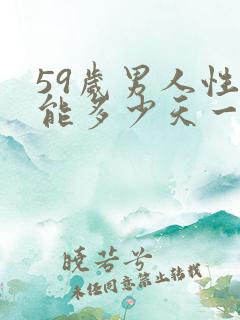 59岁男人性
能多少天一
晓芳兮
未经同意禁止转载